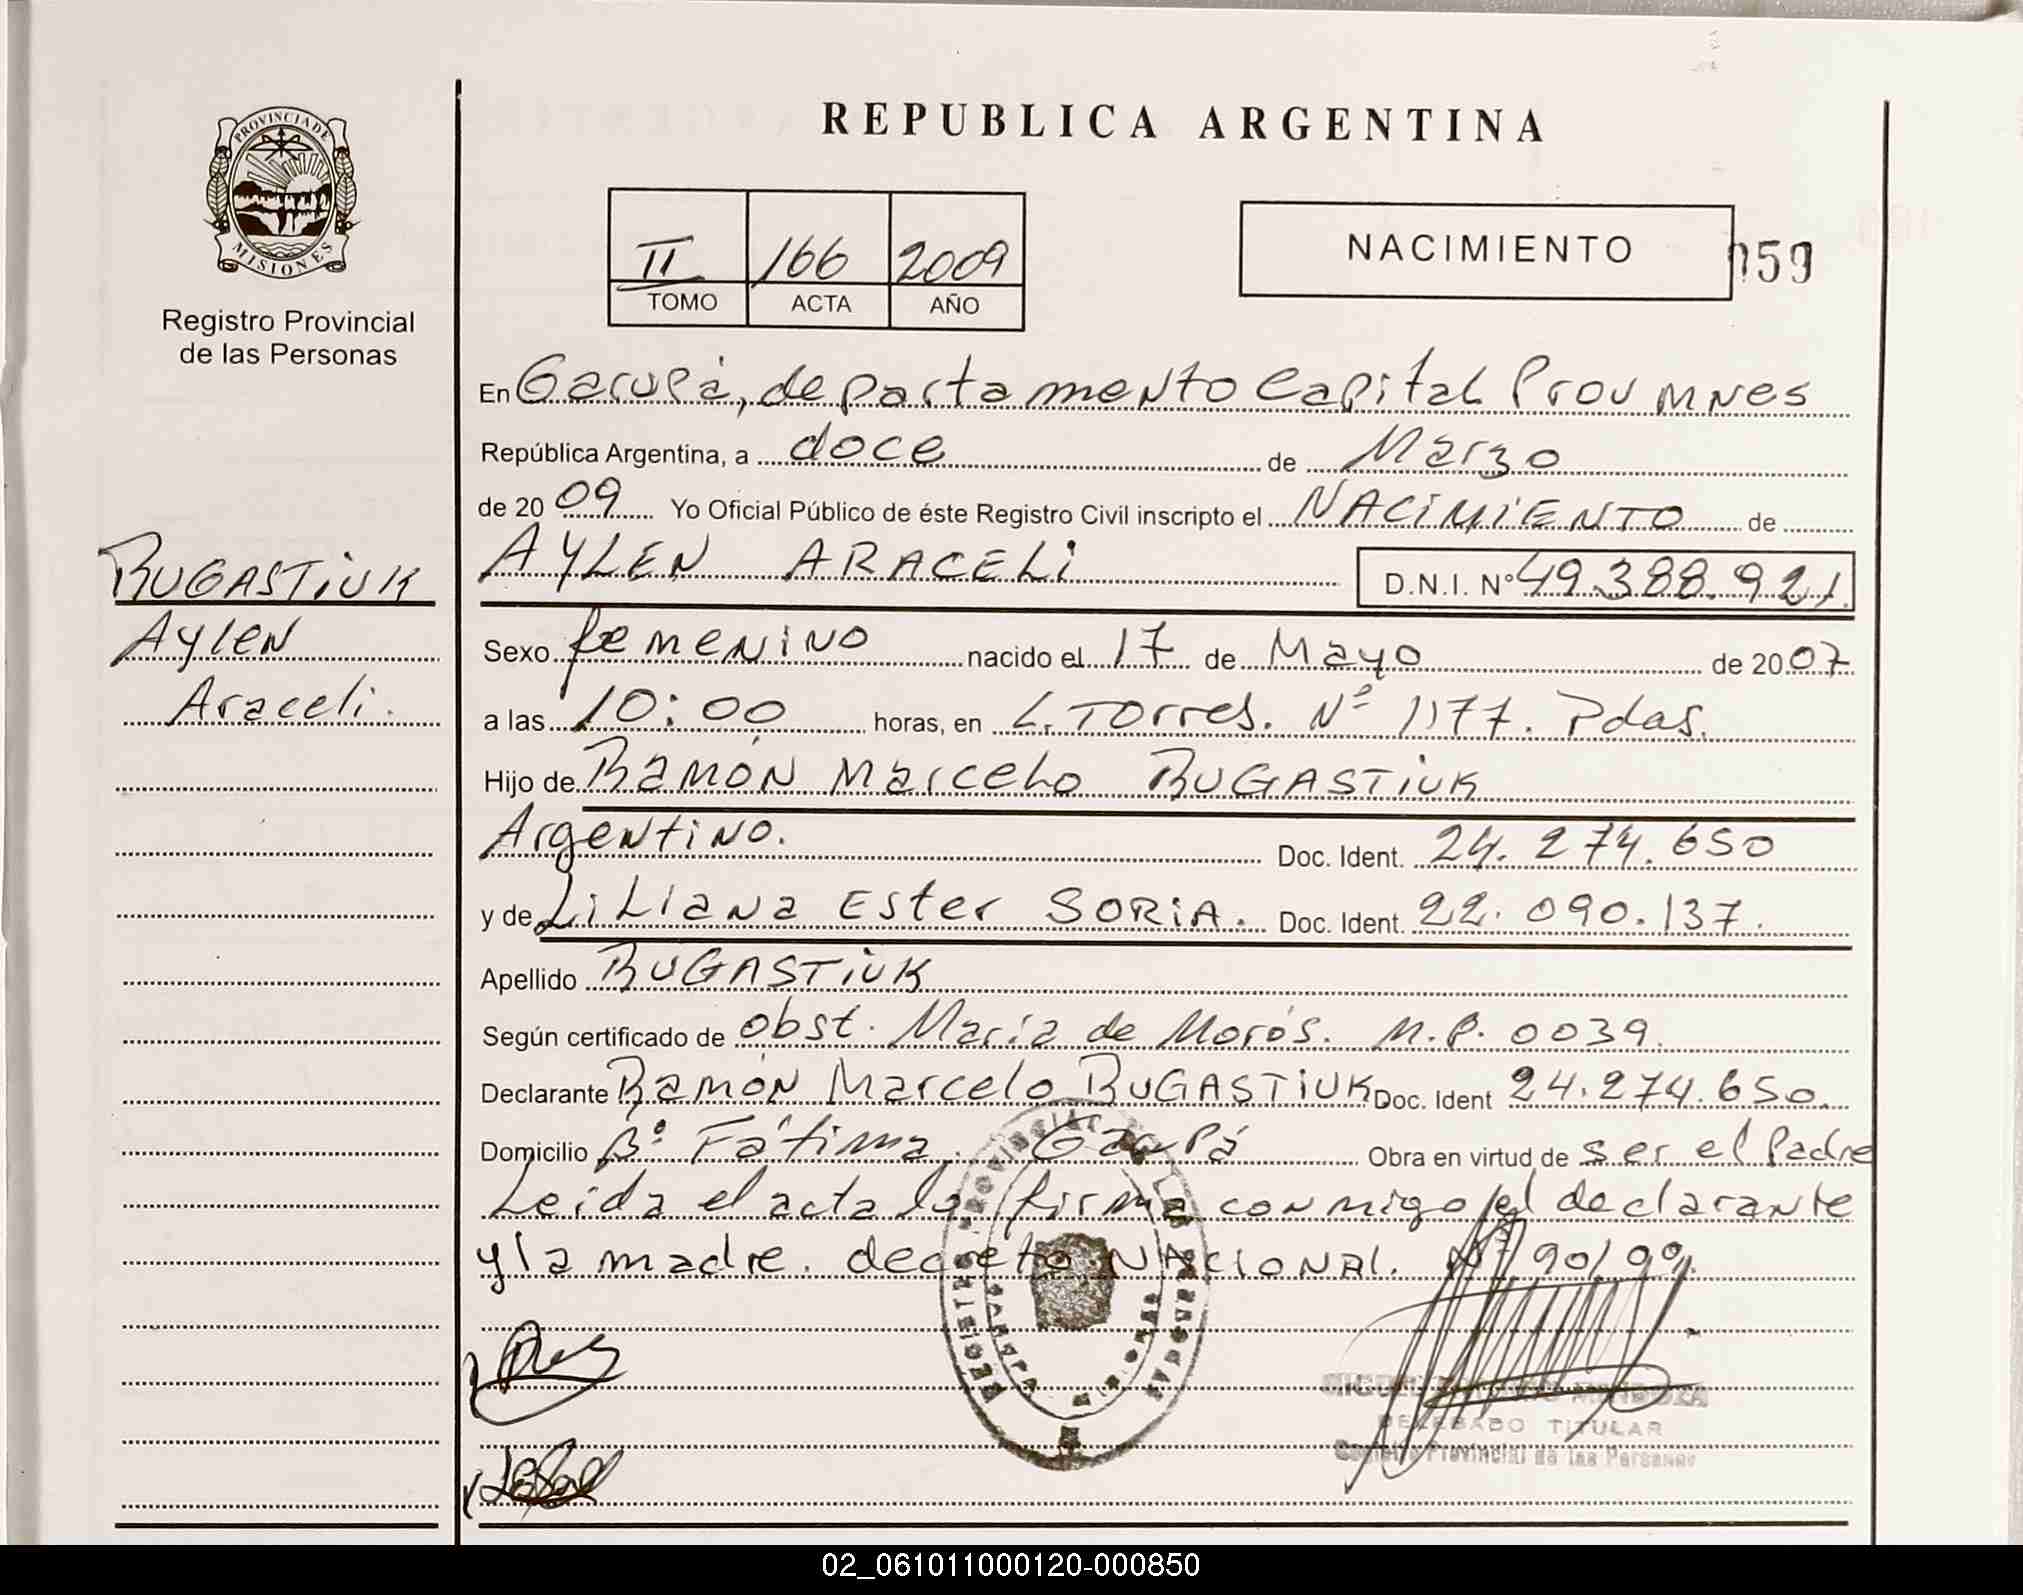 REPUBLICA ARGENTINA
PROVINCIA DE
MISIONES
Registro Provincial
de las Personas
II 166 2009
TOMO ACTA AÑO
NACIMIENTO
059
En Garupá, departamento Capital Prov Mnes
República Argentina, a doce de Marzo
de 2009 Yo Oficial Público de éste Registro Civil inscripto el NACIMIENTO de
AYLEN ARACELi D.N.I. Nº 49.388.921
BUGASTiUK
Aylen
Araceli.
Sexo femenino nacido el 17 de Mayo de 2007
a las 10:00 horas, en L. Torres. Nº 1177. Pdas.
Hijo de Ramón Marcelo BUGASTiUK
Argentino. Doc. Ident. 24.274.650
y de Liliana Ester SORiA. Doc. Ident. 22.090.137.
Apellido BUGASTiUK
Según certificado de obst. María de Morós. M.P. 0039.
Declarante Ramón Marcelo BUGASTiUK Doc. Ident 24.274.650.
Domicilio Bº Fátima. Garupá Obra en virtud de ser el Padre
Leida el acta la firma conmigo el declarante
y la madre. decreto NACIONAL. Nº 90/09.
DELEGADO TITULAR
Registro Provincial de las Personas
02_061011000120-000850